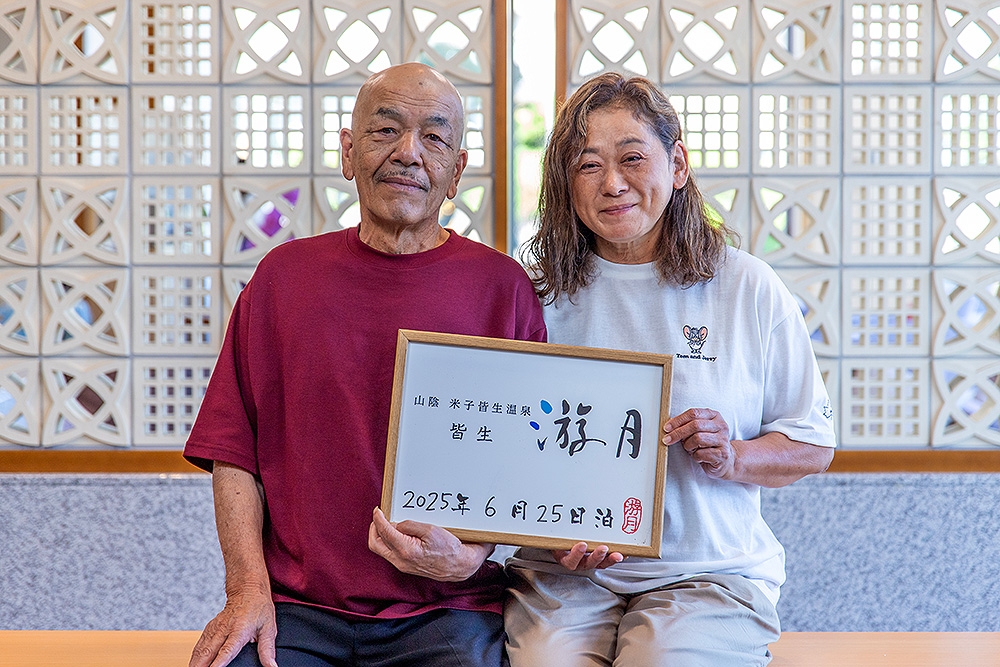 山陰 米子皆生温泉
皆生 游月
2025年 6月25日泊
游月
Tom and Jerry